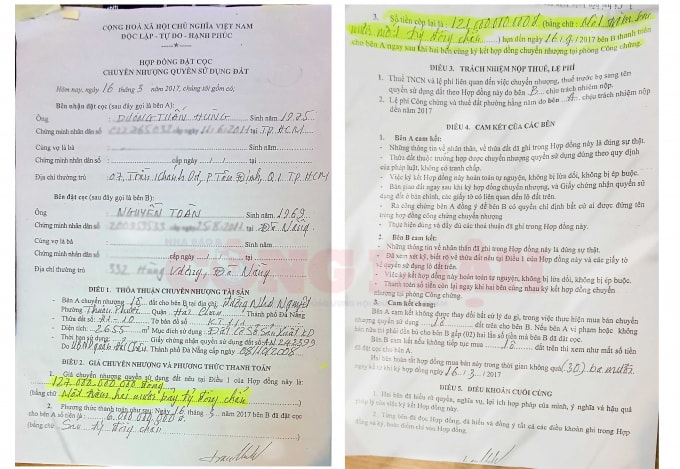 CỘNG HOÀ XÃ HỘI CHỦ NGHĨA VIỆT NAM
ĐỘC LẬP - TỰ DO - HẠNH PHÚC
HỢP ĐỒNG ĐẶT CỌC
CHUYỂN NHƯỢNG QUYỀN SỬ DỤNG ĐẤT
Hôm nay, ngày 16 tháng 3 năm 2017, chúng tôi gồm có:
Bên nhận đặt cọc (sau đây gọi là bên A):
Ông DƯƠNG TUẤN HÙNG Sinh năm 1925
Chứng minh nhân dân số cấp ngày 11.6.2011 tại TP.HCM
Cùng vợ là bà Sinh năm
Chứng minh nhân dân số cấp ngày / / tại
Địa chỉ thường trú 07, Trần Khánh Dư, P. Tân Định, Q.1. TP.HCM
Bên đặt cọc (sau đây gọi là bên B):
Ông NGUYỄN TOÀN Sinh năm 1969
Chứng minh nhân dân số tại Đà Nẵng
Cùng vợ là bà Sinh năm
Chứng minh nhân dân số cấp ngày / / tại
Địa chỉ thường trú 332 Hùng Vương, Đà Nẵng
ĐIỀU 1. THỎA THUẬN CHUYỂN NHƯỢNG TÀI SẢN
- Bên A chuyển nhượng lô đất cho bên B tại địa chỉ
Phường Thuận Phước Quận Hải Châu Thành phố Đà Nẵng
Thửa đất số: Tờ bản đồ số
Diện tích: 2655 m² Mục đích sử dụng: Đất cơ sở sản xuất KD
Thời hạn sử dụng: Giấy chứng nhận quyền sử dụng đất số
do Thành phố Đà Nẵng cấp ngày
ĐIỀU 2. GIÁ CHUYỂN NHƯỢNG VÀ PHƯƠNG THỨC THANH TOÁN
1. Giá chuyển nhượng quyền sử dụng đất nêu tại Điều 1 của Hợp đồng này là:
127.000.000.000 đồng
(bằng chữ: Một trăm hai mươi bảy tỷ đồng chẵn
2. Phương thức thanh toán như sau: Ngày 16 tháng 3 năm 2017 bên B đã đặt cọc
cho bên A số tiền là 6.000.000.000 đ
(bằng chữ: Sáu tỷ đồng chẵn
3. Số tiền còn lại là: 121.000.000.000đ (bằng chữ: Một trăm hai
mươi một tỷ đồng chẵn) hạn đến ngày 16/.../2017 bên B thanh toán
cho bên A ngay sau khi hai bên cùng ký kết hợp đồng chuyển nhượng tại phòng Công chứng.
ĐIỀU 3. TRÁCH NHIỆM NỘP THUẾ, LỆ PHÍ
1. Thuế TNCN và lệ phí liên quan đến việc chuyển nhượng, thuế trước bạ sang tên
quyền sử dụng đất theo Hợp đồng này do bên B chịu trách nhiệm nộp.
2. Lệ phí Công chứng và thuế đất phường hằng năm do bên A chịu trách nhiệm nộp
đến năm 2017
ĐIỀU 4. CAM KẾT CỦA CÁC BÊN
1. Bên A cam kết:
- Những thông tin về nhân thân, về thửa đất đã ghi trong Hợp đồng này là đúng sự thật.
- Thửa đất thuộc trường hợp được chuyển nhượng quyền sử dụng đúng theo quy định
của pháp luật, không có tranh chấp.
- Việc ký kết Hợp đồng này hoàn toàn tự nguyện, không bị lừa dối, không bị ép buộc.
- Bàn giao đất ngay sau khi ký hợp đồng chuyển nhượng, và Giấy chứng nhận quyền sử
dụng đất ở bản chính, các giấy tờ có liên quan đến lô đất trên.
- Ra công chứng bên A đồng ý để bên B có quyền chỉ định bất cứ ai được đứng tên
trong hợp đồng công chứng chuyển nhượng
- Thực hiện đúng và đầy đủ các thoả thuận đã ghi trong Hợp đồng này.
2. Bên B cam kết:
- Những thông tin về nhân thân đã ghi trong Hợp đồng này là đúng sự thật.
- Đã xem xét kỹ, biết rõ về thửa đất nêu tại Điều 1 của Hợp đồng này và các giấy tờ
về quyền sử dụng lô đất trên.
- Việc ký kết Hợp đồng này hoàn toàn tự nguyện, không bị lừa dối, không bị ép buộc.
- Thanh toán số tiền còn lại ngay khi hai bên cùng nhau ký kết hợp đồng chuyển
nhượng tại phòng Công chứng.
3. Cam kết chung:
Bên A cam kết không được thay đổi bất cứ lý do gì, trong việc thực hiện mua bán
chuyển nhượng quyền sử dụng lô đất trên cho bên B. Nếu bên A vi phạm hoặc không
bán nữa thì phải đền bù cho bên B gấp (02) hai lần số tiền mà bên B đã đặt cọc.
Bên B cam kết nếu không tiếp tục mua lô đất trên thì xem như mất số tiền
đã đặt cọc cho bên A.
Hai bên hoàn tất hợp đồng mua bán này trong thời gian không quá (30) ba mươi
ngày kể từ khi ký hợp đồng này ngày 16/3/2017
ĐIỀU 5. ĐIỀU KHOẢN CUỐI CÙNG
1. Hai bên đã hiểu rõ quyền, nghĩa vụ, lợi ích hợp pháp của mình, ý nghĩa và hậu quả
pháp lý của việc ký kết Hợp đồng này.
2. Từng bên đã đọc Hợp đồng, đã hiểu và đồng ý tất cả các điều khoản ghi trong Hợp
đồng và ký, hoặc điểm chỉ vào Hợp đồng.